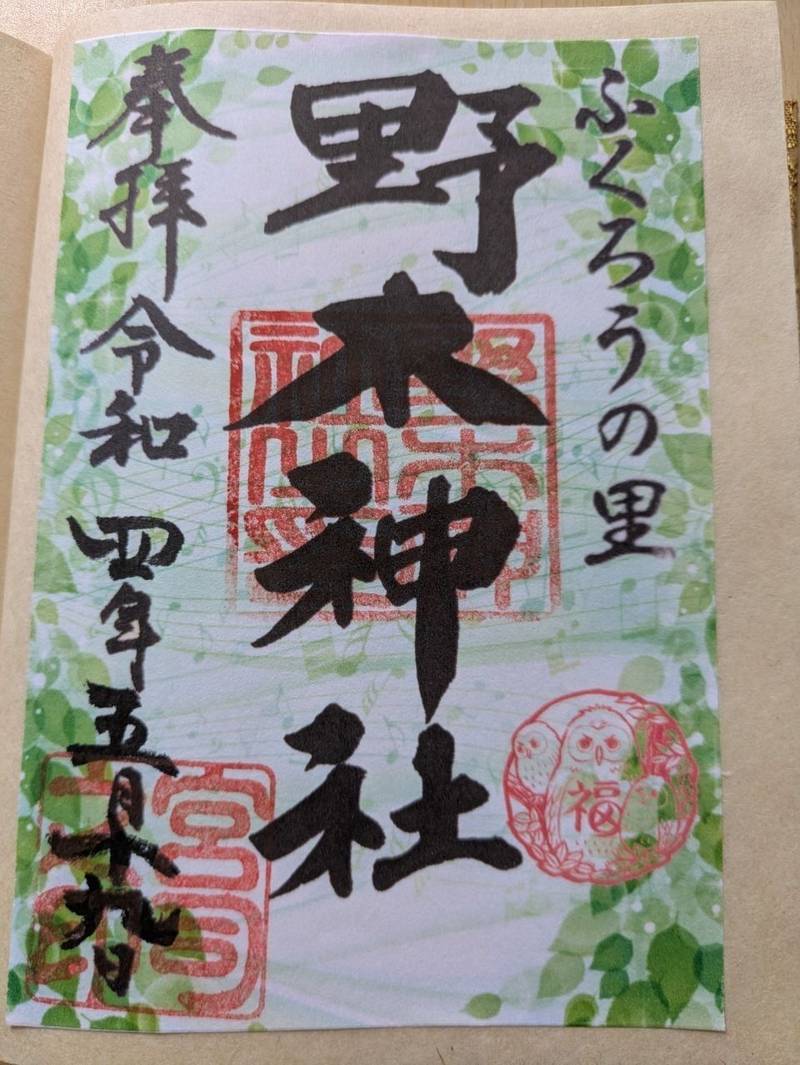 ふくろうの里
野木神社
奉拝 令和四年五月十九日
福
宮司之印